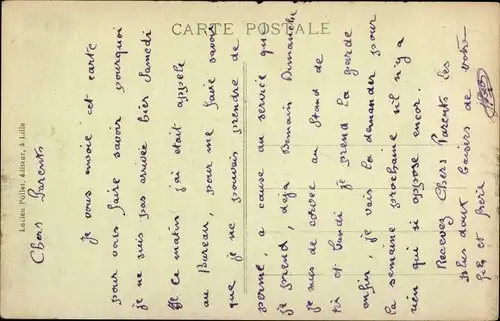 CARTE POSTALE
Lucien Pollet, éditeur, à Lille
Chers Parents
je vous envoie cet carte
pour vous faire savoir pourquoi
je ne suis pas arrivée hier Samedi
ce matin j'ai était appelé
au Bureau, pour me faire savoir
que je ne pouvais prendre de
perme, a cause du service que
je prend, deja Demain Dimanche
je suis de corvée au Stand de
tir et lundi je prend la garde
enfin, je vais la demander pour
la semaine prochaine s'il n'y a
rien qui si oppose encor.
Recevez Chers Parents les
plus doux baisers de votre
fils et frère